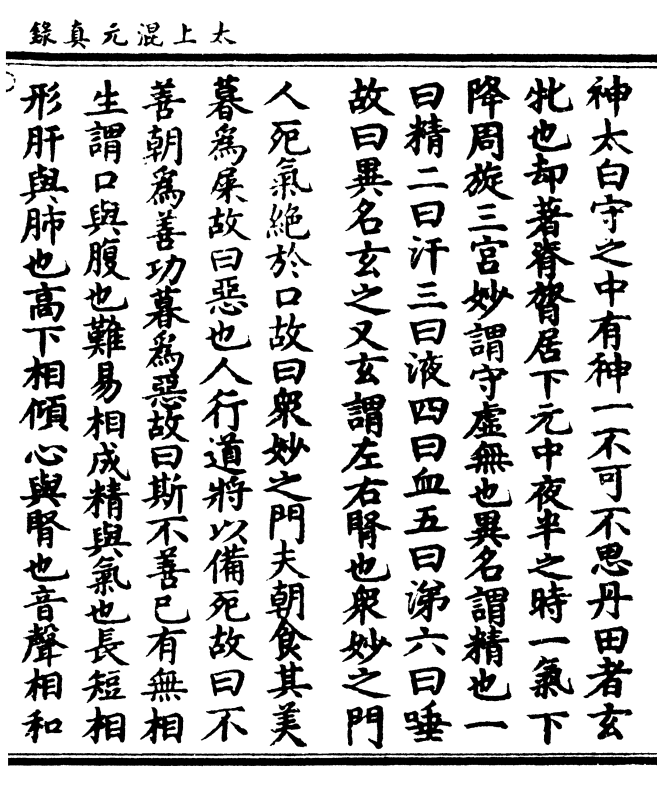 太上混元真錄
神太白守之中有神一不可不思丹田者玄
牝也却著脊膂居下元中夜半之時一氣下
降周旋三宮妙謂守虛無也異名謂精也一
曰精二曰汗三曰液四曰血五曰涕六曰唾
故曰異名玄之又玄謂左右腎也衆妙之門
人死氣絕於口故曰衆妙之門夫朝食其美
暮爲屎故曰惡也人行道將以備死故曰不
善朝爲善功暮爲惡故曰斯不善已有無相
生謂口與腹也難易相成精與氣也長短相
形肝與肺也高下相傾心與腎也音聲相和